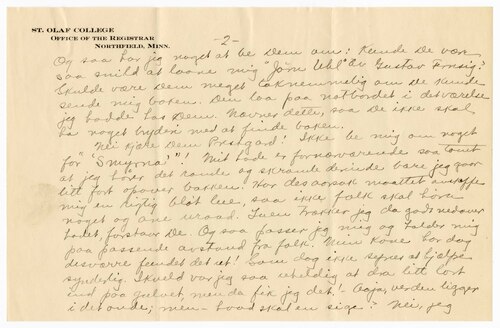 ST. OLAF COLLEGE
OFFICE OF THE REGISTRAR
NORTHFIELD, MINN.
-2-
Og saa har jeg noget at be Dem om: Kunde De være
saa snild at laane mig "Jörn Uhl" av Gustav Frensen?
Skulde være Dem meget taknemmelig om De kunde
sende mig boken. Den laa paa natbordet i det værelse
jeg hadde hos Dem. Nævner dette, saa De ikke skal
ha noget bryderi med at finde boken.
Nei kjære Dem Prestgard! Ikke be mig om noget
for "Smyrna"! Mit hode er fornærværende saa tomt
at jeg hører det runde og skramle derinde bare jeg gaar
litt fort opover bakken. Har desaarsak maattet anskaffe
mig en rigtig bløt lue, saa ikke folk skal høre
noget og ane uraad. Luen trækker jeg da godt nedover
hodet, forstaar De. Og saa passer jeg mig og holder mig
paa passende avstand fra folk. Min kone har dog
desværre fundet det ut! Som dog ikke hjælpe
synderlig. Ikveld var jeg saa uheldig at dra litt fort
ind paa gulvet, men da fik jeg det! Aaja, verden ligger
i det onde; men - hvad skal en sige? Nei, jeg